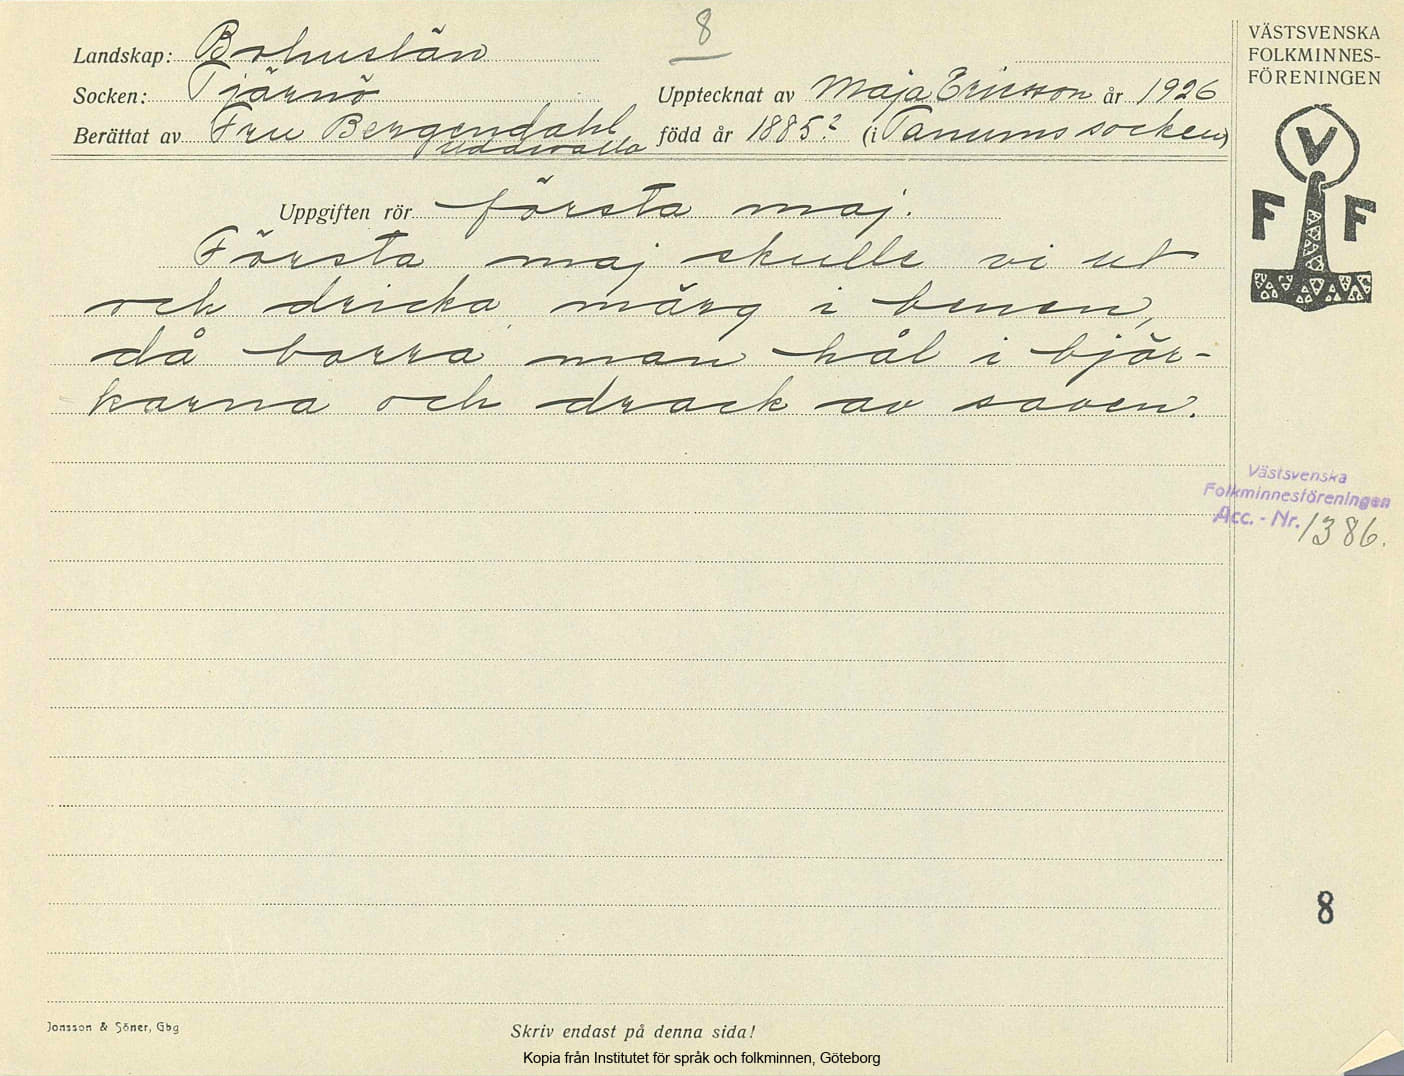 8
Landskap: Bohuslän
Socken: Tjärnö
Upptecknat av Maja Ericsson år 1926
Berättat av Fru Bergendahl Uddevalla född år 1885? (i Tanums socken)
Uppgiften rör första maj.
Första maj skulle vi ut
och dricka märg i benen,
då borra man hål i björ-
karna och drack av saven.
VÄSTSVENSKA
FOLKMINNES-
FÖRENINGEN
V
F F
Västsvenska
Folkminnesföreningen
Acc. - Nr. 1386.
8
Jonsson & Söner, Gbg
Skriv endast på denna sida!
Kopia från Institutet för språk och folkminnen, Göteborg